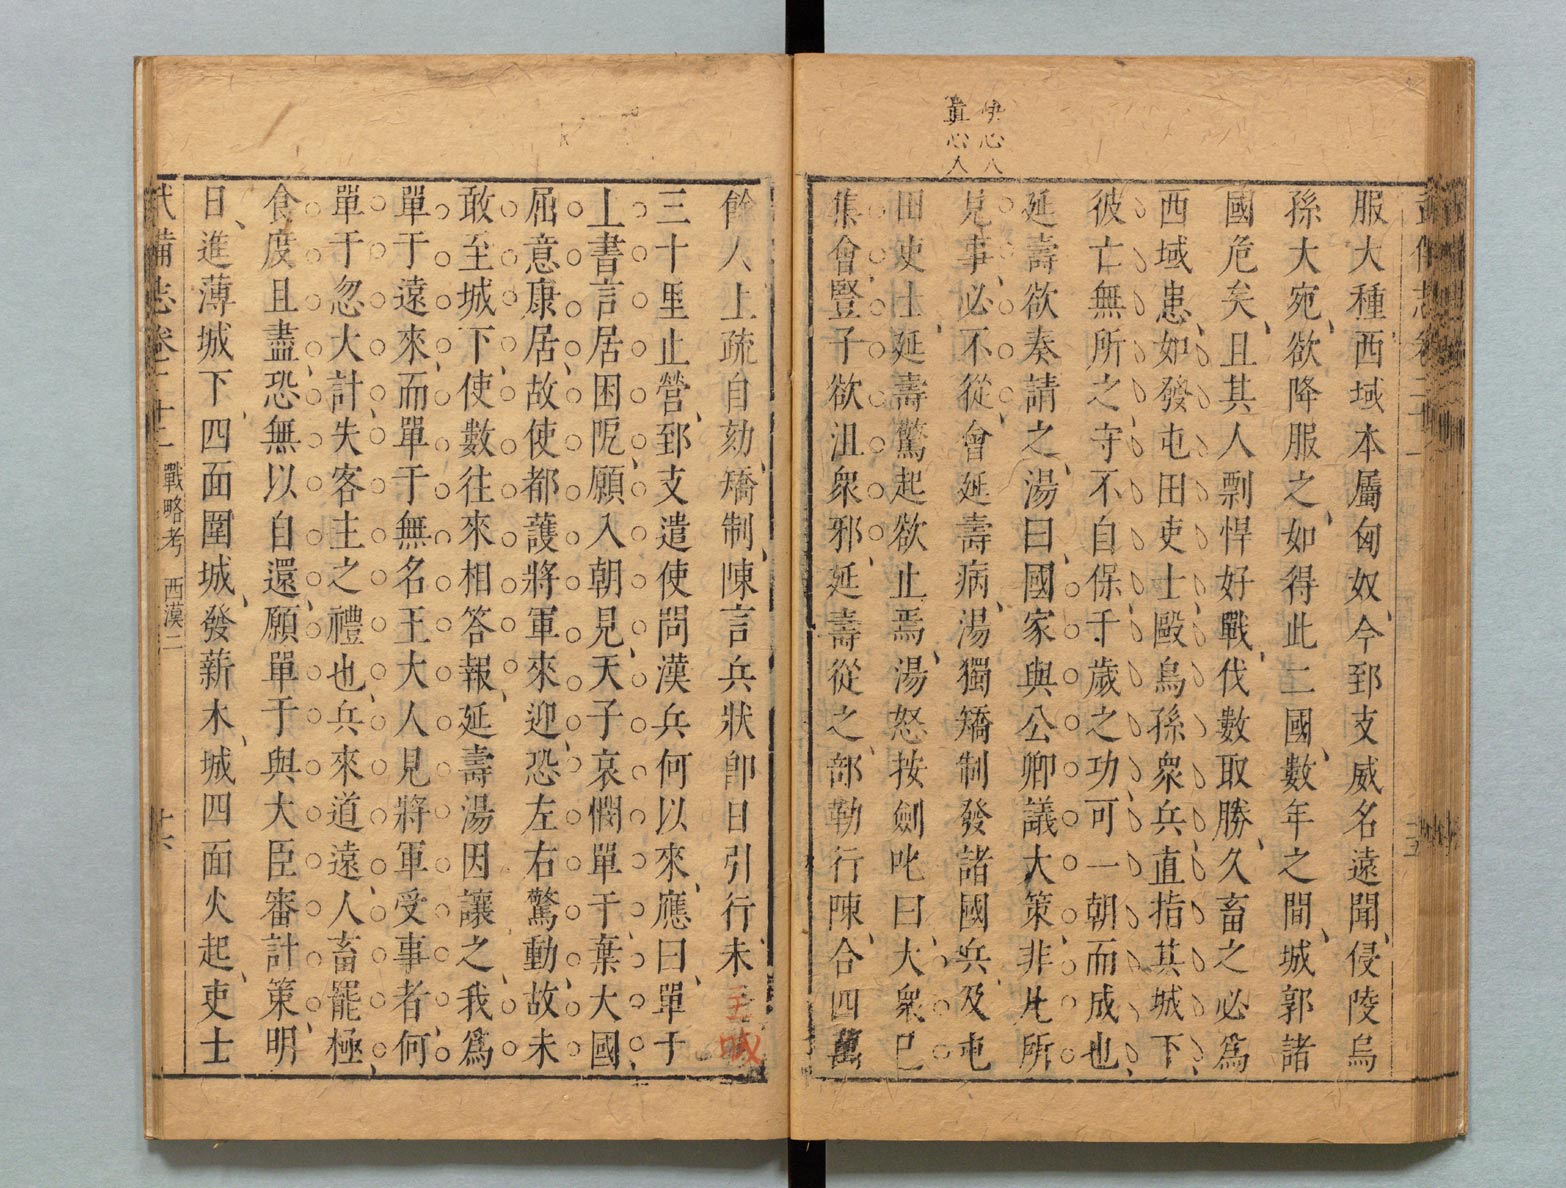 快心人
真心人
服大種西域本屬匈奴、今郅支威名遠聞、侵陵烏
孫大宛、欲降服之、如得此二國、數年之間、城郭諸
國危矣、且其人剽悍好戰、伐數取勝、久畜之必爲
西域患、如發屯田吏士毆烏孫衆兵、直指其城下、
彼亡無所之、守不自保、千歲之功、可一朝而成也、
延壽欲奏請之、湯曰、國家與公卿議、大策非凡所
見、事必不從、會延壽病、湯獨矯制發諸國兵、及屯
田吏士、延壽驚起欲止焉、湯怒按劍叱曰、大衆已
集會、豎子欲沮衆邪、延壽從之、部勒行陳、合四萬
餘人、上疏自劾、矯制、陳言兵狀、卽日引行、未至城
三十里止營、郅支遣使問漢兵何以來、應曰、單于
上書言居困阨、願入朝見、天子哀憫單于、棄大國、
屈意康居、故使都護將軍來迎、恐左右驚動、故未
敢至城下、使數往來相答報、延壽湯因讓之、我爲
單于遠來、而單于無名王大人見將軍受事者、何
單于忽大計、失客主之禮也、兵來道遠、人畜罷極、
食度且盡、恐無以自還、願單于與大臣審計策、明
日、進薄城下、四面圍城、發薪木、城四面火起、吏士
武備志卷二十二 戰略考 西漢二 十六